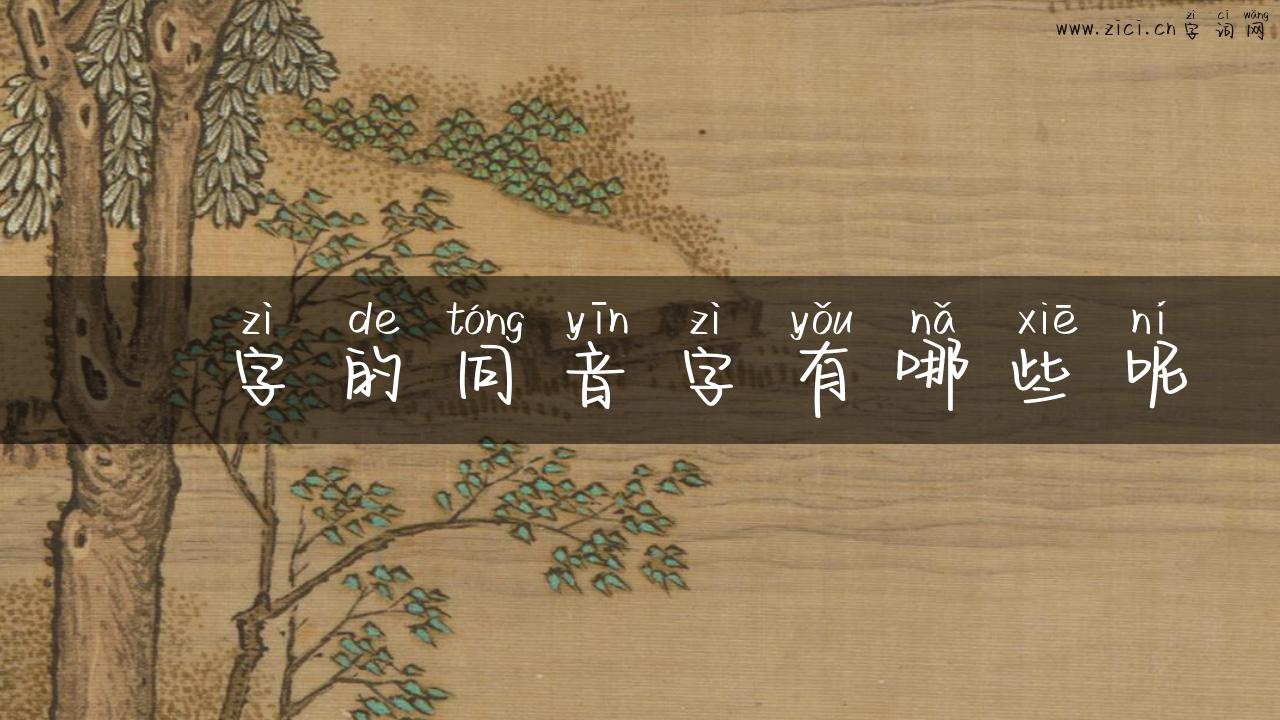 zì cí wǎng
www.zici.cn字词网
zì de tóng yīn zì yǒu nǎ xiē ní
字的同音字有哪些呢